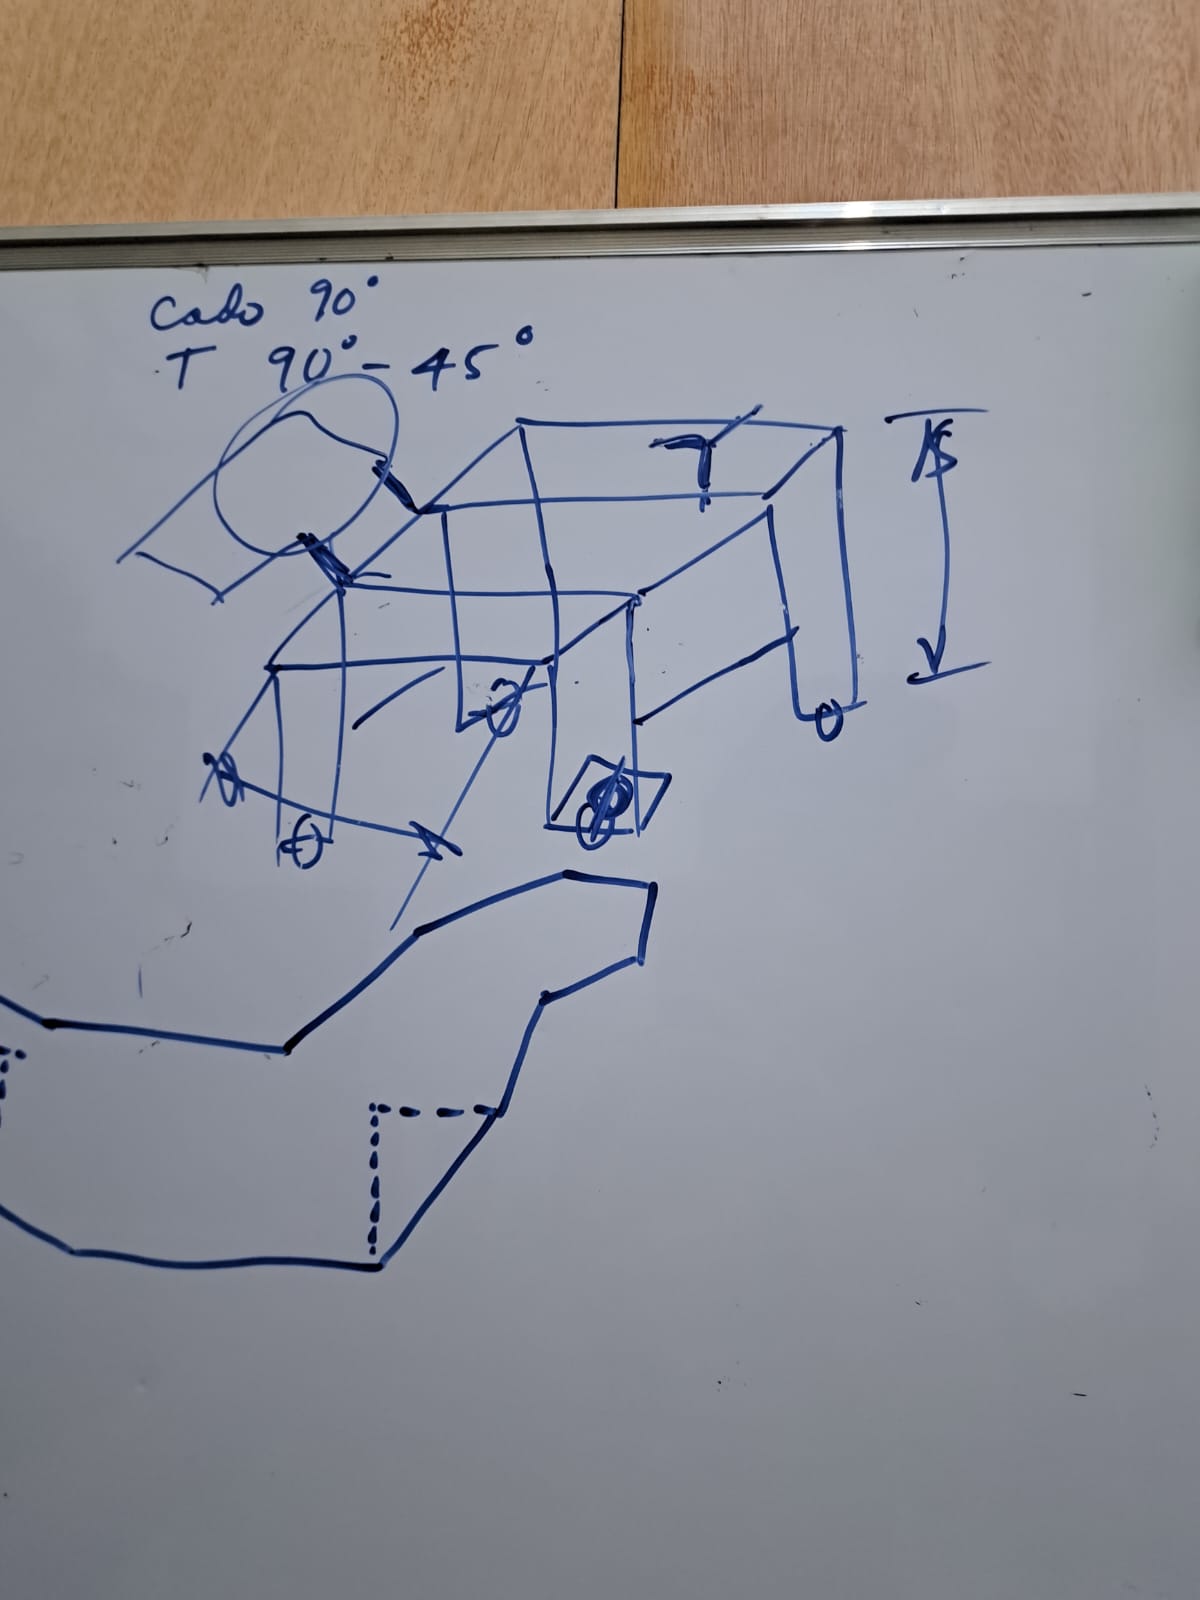 Codo 90°
T 90°-45°